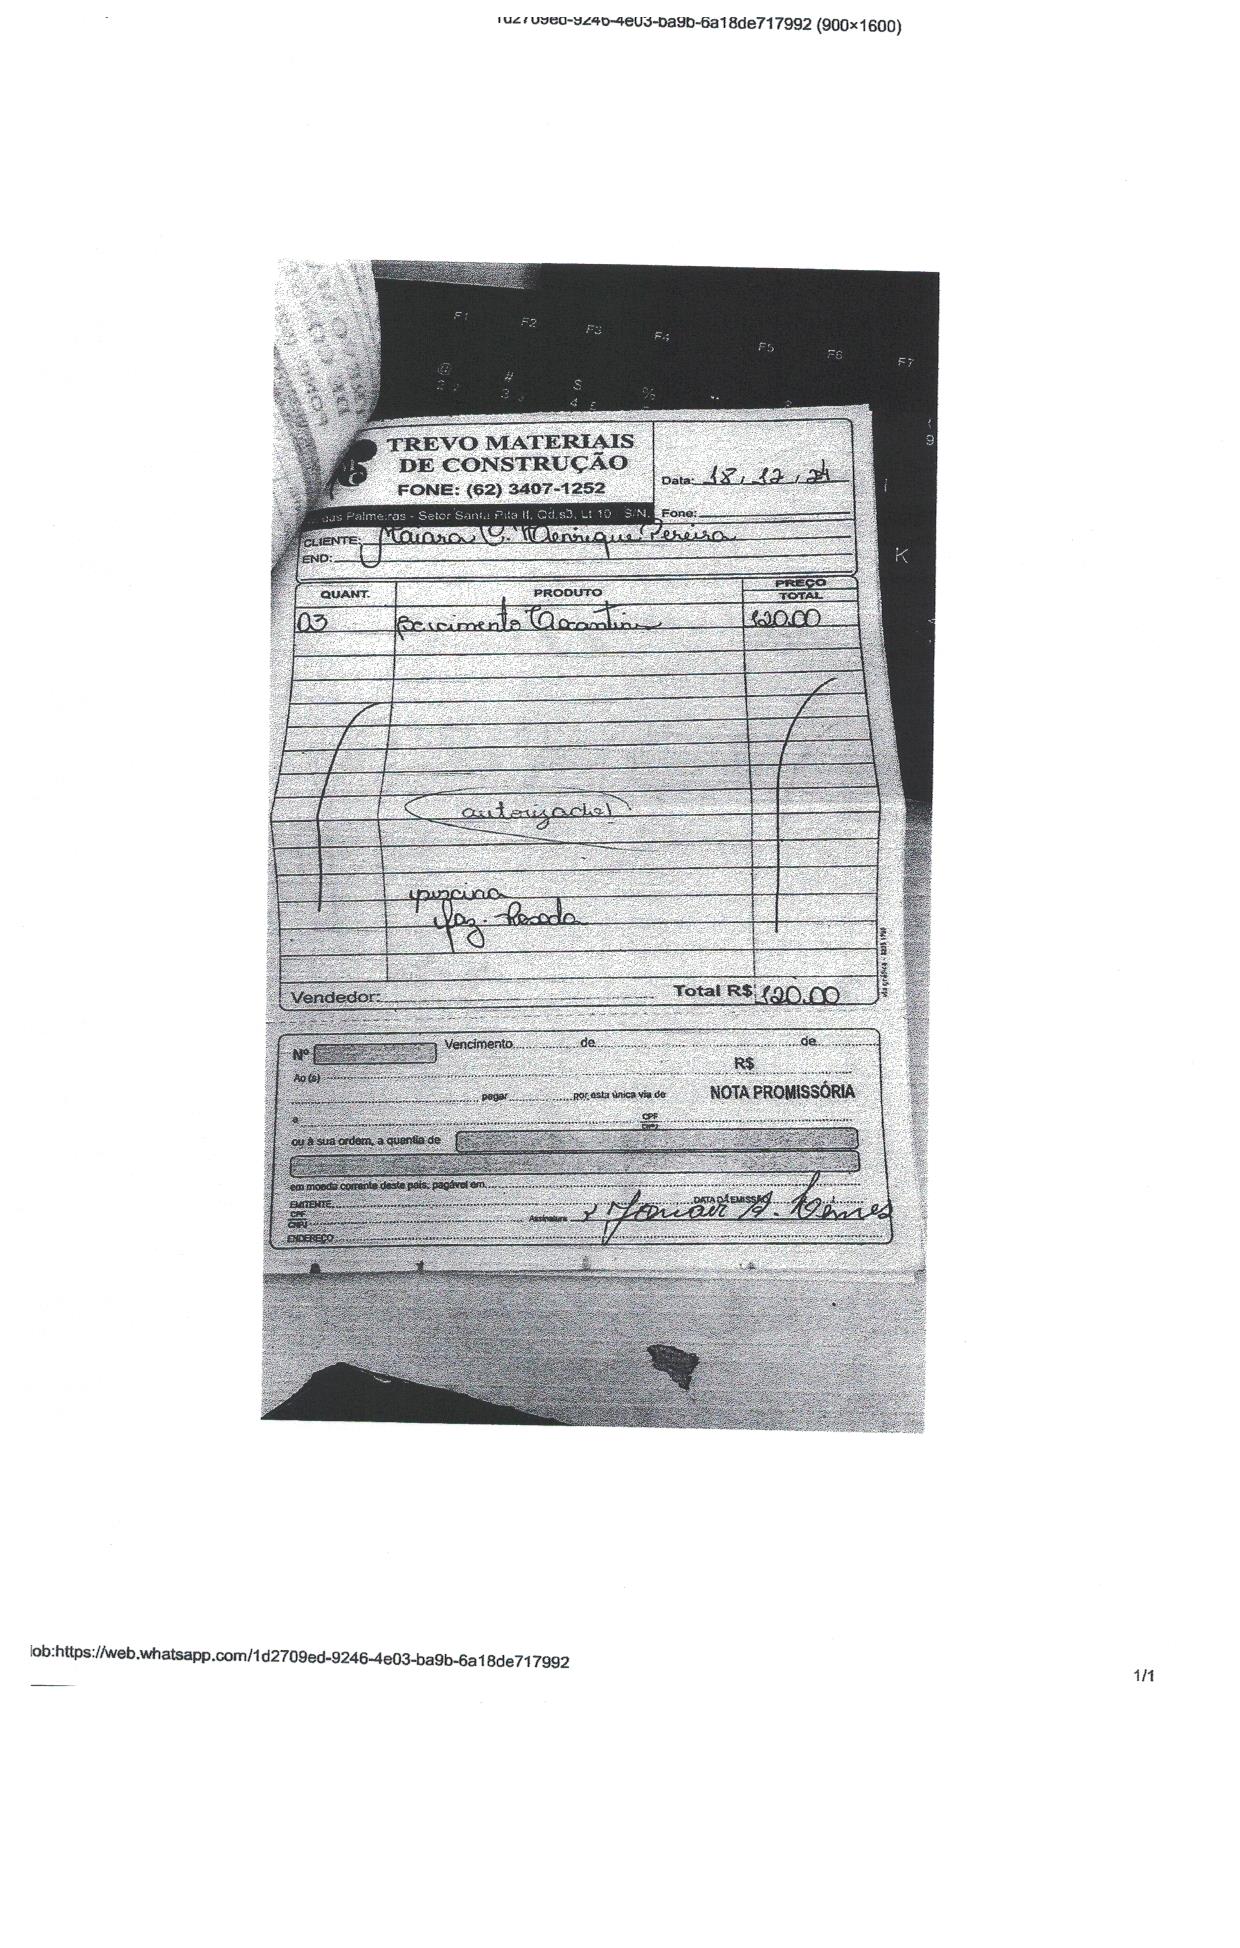 1d2709ed-9246-4e03-ba9b-6a18de717992 (900×1600)
F1 F2 F3 F4 F5 F6 F7
@ # $ %
2 3 4
9
K
TREVO MATERIAIS
DE CONSTRUÇÃO
FONE: (62) 3407-1252
das Palmeiras - Setor Santa Rita II, Qd.s3, Lt 10 S/N.
Data: 18, 12, 24
Fone:
CLIENTE: Maiara C. Henrique Pereira
END:
QUANT. PRODUTO PREÇO TOTAL
03 cimento 120.00
autorizado!
piscina
faz.
Vendedor: Total R$ 120.00
Nº Vencimento de de
R$
Ao(s)
pagar por esta única via de NOTA PROMISSÓRIA
a CPF
CNPJ
ou à sua ordem, a quantia de
em moeda corrente deste país, pagável em
EMITENTE DATA DA EMISSÃO
CPF
CNPJ Assinatura
ENDEREÇO
ob:https://web.whatsapp.com/1d2709ed-9246-4e03-ba9b-6a18de717992
1/1